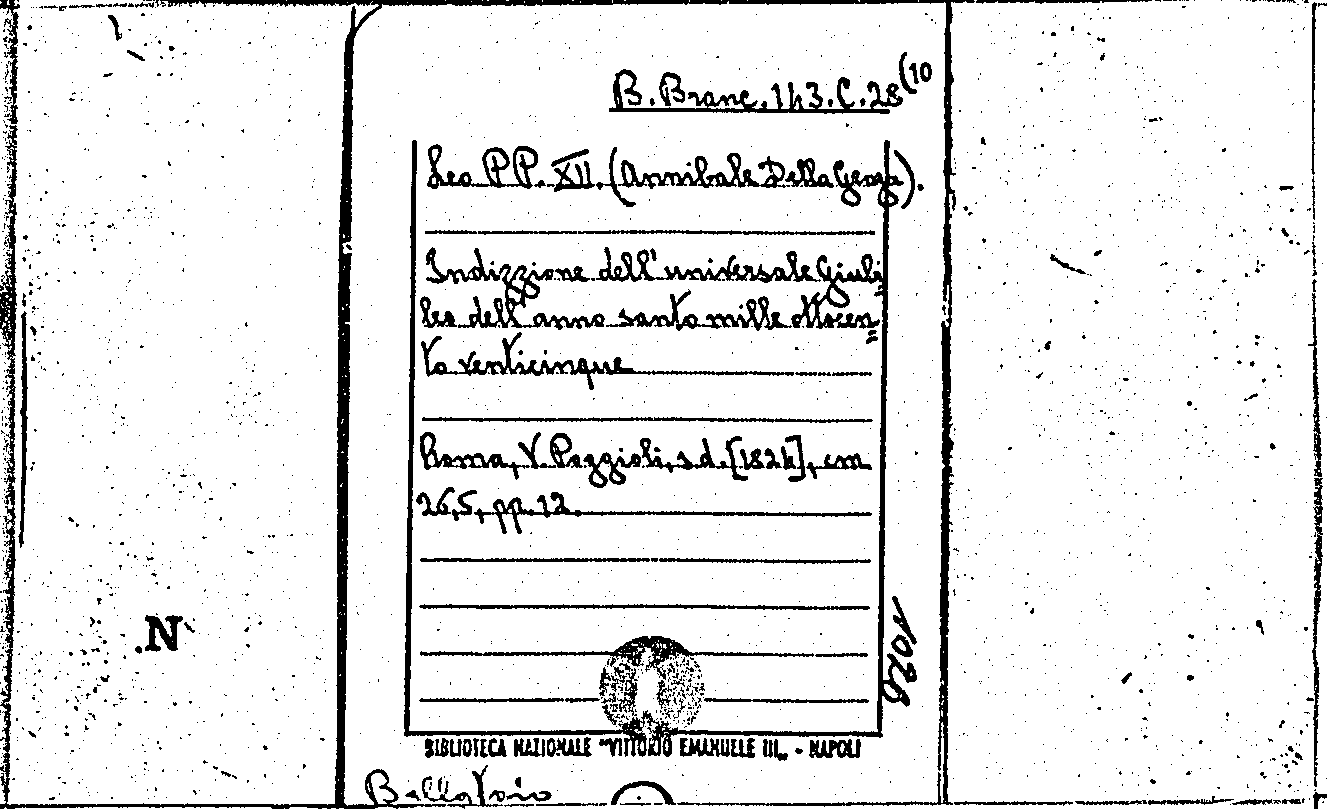 B. Branc. 143. C. 28 (10
Leo PP. XII. (Annibale Della Genga).
Indizzione dell' universale Giubi
leo dell' anno santo mille ottocen
to venticinque
Roma, V. Poggioli, s.d. [1824], cm
26,5, pp. 12.
N.
BIBLIOTECA NAZIONALE "VITTORIO EMANUELE III„ - NAPOLI